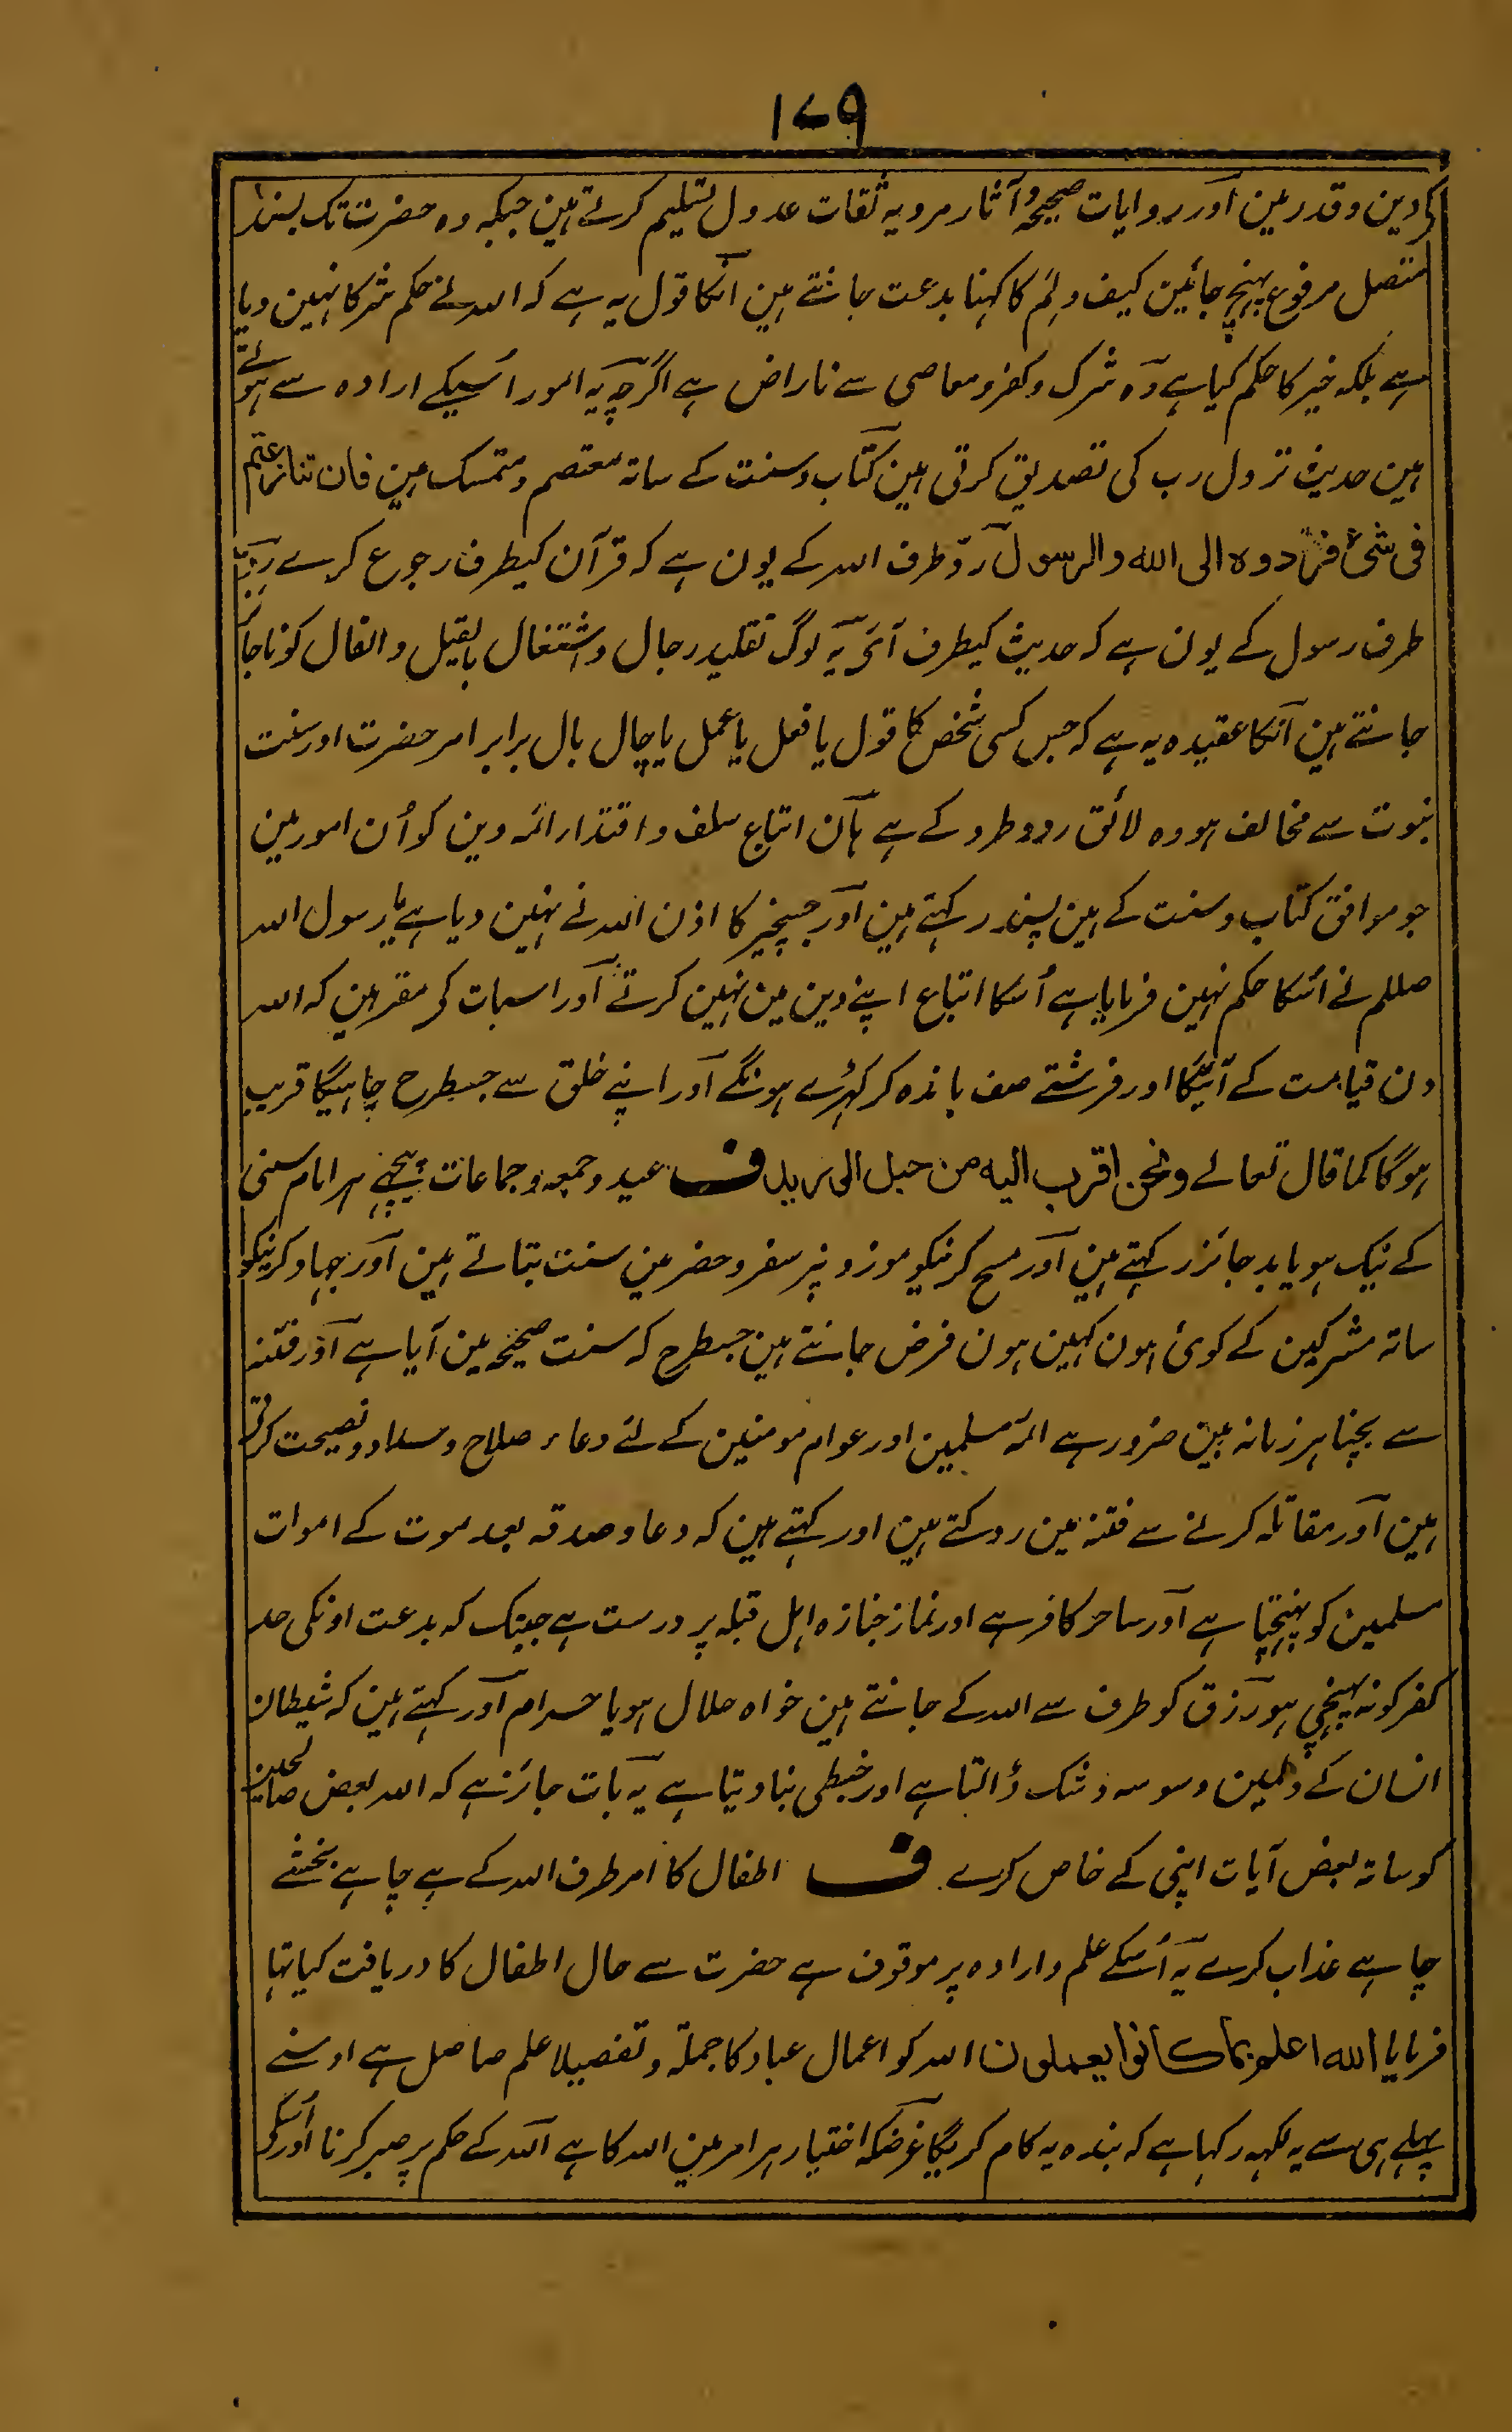 ۱۷۹
کا دین و قدر مین اور روایات صحیحہ و آثار مرویہ ثقات عدول تسلیم کرتے ہین جبکہ وہ حضرت تک بسند
متصل مرفوع پہنچ جائین کیف و لم کا کہنا بدعت جانتے ہین انکا قول یہ ہے کہ اللہ نے حکم شر کا نہین دیا
ہے بلکہ خیر کا حکم کیا ہے وہ شرک و کفر و معاصی سے ناراض ہے اگرچہ یہ امور اُسیکے ارادہ سے ہوئے
ہین حدیث نزول رب کی تصدیق کرتی ہین کتاب و سنت کے ساتہ معتصم و متمسک ہین فان تنازعتم
فی شیٔ فردوہ الی اللہ والرسول ردّ طرف اللہ کے یون ہے کہ قرآن کیطرف رجوع کرے ردّ
طرف رسول کے یون ہے کہ حدیث کیطرف آئے یہ لوگ تقلید رجال و اشتغال بالقیل و القال کو ناجائز
جانتے ہین انکا عقیدہ یہ ہے کہ جس کسی شخص کا قول یا فعل یا عمل یا چال بال برابر امر حضرت اور سنت
نبوت سے مخالف ہو وہ لائق رد و طرد کے ہے ہان اتباع سلف و اقتدار ائمہ دین کو اُن امور مین
جو موافق کتاب و سنت کے ہین پسند رکہتے ہین اور جسچیز کا اذن اللہ نے نہین دیا ہے یا رسول اللہ
صللم نے اُسکا حکم نہین فرمایا ہے اُسکا اتباع اپنے دین مین نہین کرتے اور اسبات کی مقر ہین کہ اللہ
دن قیامت کے آئیگا اور فرشتے صف باندہ کر کہڑے ہونگے اور اپنے خلق سے جسطرح چاہیگا قریب
ہوگا کما قال تعالے و نحن اقرب الیہ من حبل الورید ف عید و جمعہ و جماعات پیچھے ہر امام سنی
کے نیک ہو یا بد جائز رکہتے ہین اور مسح کرنیکو موزونپر سفر و حضر مین سنت بتاتے ہین اور جہاد کرنیکو
ساتہ مشرکین کے کوئی ہون کہین ہون فرض جانتے ہین جسطرح کہ سنت صحیحہ مین آیا ہے اور فتنہ
سے بچنا ہر زمانہ مین ضرور ہے ائمہ مسلمین اور عوام مومنین کے لئے دعاء صلاح و سداد و نصیحت کرتے
ہین اور مقاتلہ کرنے سے فتنہ مین روکتے ہین اور کہتے ہین کہ دعا و صدقہ بعد موت کے اموات
مسلمین کو پہنچتا ہے اور ساحر کافر ہے اور نماز جنازہ اہل قبلہ پر درست ہے جبتک کہ بدعت اونکی حد
کفر کو نہ پہنچی ہو رزق کو طرف سے اللہ کے جانتے ہین خواہ حلال ہو یا حرام اور کہتے ہین کہ شیطان
انسان کے دلمین وسوسہ و شک ڈالتا ہے اور خبطی بنا دیتا ہے یہ بات جائز ہے کہ اللہ بعض صالحین
کو ساتہ بعض آیات اپنی کے خاص کرے ف اطفال کا امر طرف اللہ کے ہے چاہے بخشے
چاہے عذاب کرے یہ اُسکے علم و ارادہ پر موقوف ہے حضرت سے حال اطفال کا دریافت کیا تہا
فرمایا اللہ اعلم بما کانوا یعملون اللہ کو اعمال عباد کا جملۃ و تفصیلا علم حاصل ہے اوسنے
پہلے ہی سے یہ لکہہ رکہا ہے کہ بندہ یہ کام کریگا غرضکہ اختیار ہر امر مین اللہ کا ہے اللہ کے حکم پر صبر کرنا اور اُسکے